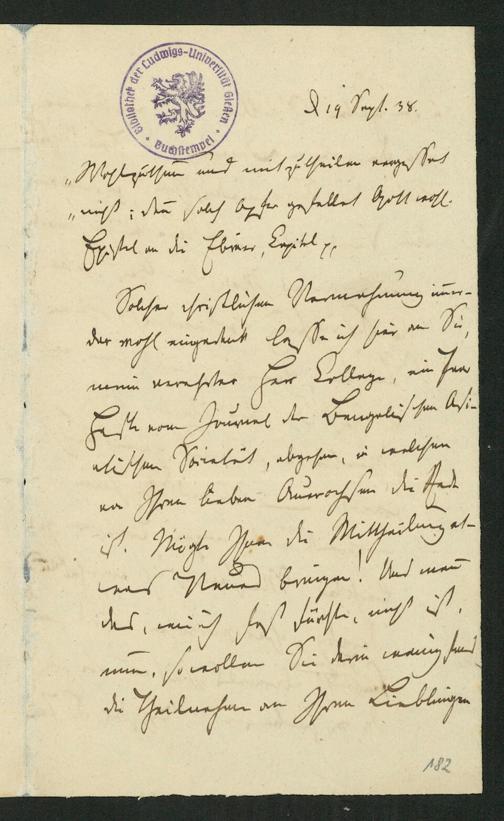 Bibliothek der Ludwigs-Universität Gießen
Buchstempel
D 19 Sept. 38.
„Wohlzuthun und mitzutheilen vergesset
„nicht; denn solch Opfer gefället Gott wohl.
Epistel an die Ebräer, Capitel
Solcher christlichen Vermahnung immer-
dar wohl eingedenk lasse ich hier an Sie,
mein verehrter Herr College, ein Paar
Hefte vom Journal der Bengalischen Asi-
atischen Societät, abgehen, in welchen
von Ihren lieben Auerochsen die Rede
ist. Möge Ihnen die Mittheilung et-
was Neues bringen! Und wenn
das, wie ich fast fürchte, nicht ist,
nun, so wollen Sie darin wenigstens
die Theilnahme an Ihren Lieblingen
182